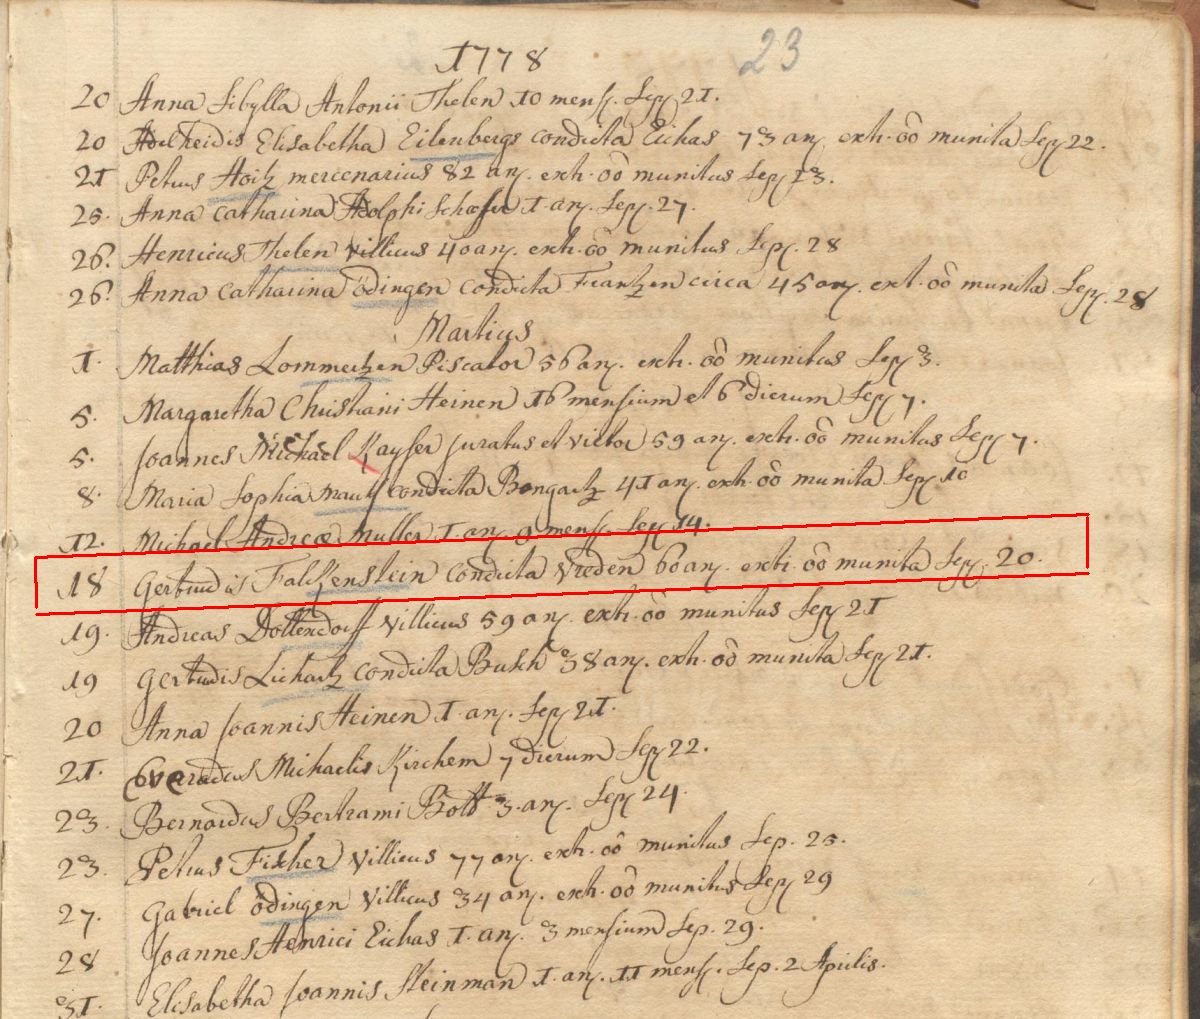 1778
23
20 Anna Sibylla Antonii Thelen 10 mens. Sep. 21.
20 Adelheidis Elisabetha Eilenbergs condicta Eichas 73 an. extr. oô munita Sep. 22.
21 Petrus Hoitz mercenarius 82 an. extr. oô munitus Sep. 23.
25. Anna Catharina Adolphi Schäfer 1. an. Sep. 27.
26. Henricus Thelen Villicus 40 an. extr. oô munitus Sep. 28
26. Anna Catharina Ödingen condicta Frantzen circa 45 an. ext. oô munita Sep. 28
Martius
1. Matthias Lommertzen Piscator 56 an. extr. oô munitus Sep 3.
5. Margaretha Christiani Heinen 16 mensium et 6 dierum Sep 7.
5. Joannes Michael Kayser juratus et victor 59 an. extr. oô munitus Sep 7.
8. Maria Sophia condicta Bongartz 41 an. extr. oô munita Sep 10
12. Michael Andreæ Muller 1. an. 9 mens. Sep 14.
18 Gertrudis Falckenstein condicta Vreden 60 an. extr. oô munita Sep. 20.
19. Andreas Dollendorff Villicus 59 an. extr. oô munitus Sep 21
19 Gertrudis Lichartz condicta Busch 38 an. extr. oô munita Sep 21.
20 Anna Joannis Heinen 1. an. Sep 21.
21. Everardus Michaelis Kirchem 7 dierum Sep 22.
23. Bernardus Bertrami Bott 3. an. Sep 24.
23. Petrus Fischer Villicus 77 an. extr. oô munitus Sep. 25.
27. Gabriel Ödingen Villicus 34 an. extr. oô munitus Sep 29
28 Joannes Henrici Eichas 1. an. 3 mensium Sep. 29.
31. Elisabetha Joannis Steinman 1. an. 11 mens. Sep. 2 Aprilis.